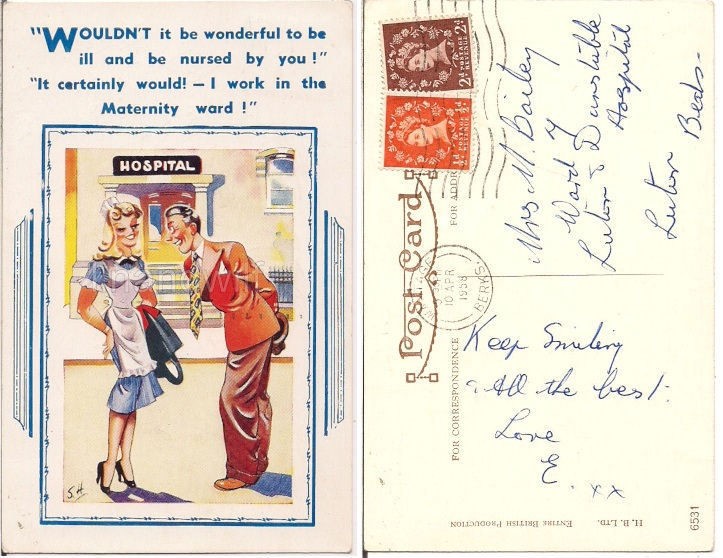 "WOULDN'T it be wonderful to be
ill and be nursed by you!"
"It certainly would! – I work in the
Maternity ward!"
HOSPITAL
S.H
2d POSTAGE REVENUE 2d
½d POSTAGE REVENUE ½d
10 APR
1958
BERKS
Post Card
FOR ADDR
FOR CORRESPONDENCE
Mrs M. Bailey
Ward 7
Luton & Dunstable
Hospital
Luton Beds-
Keep Smiling
All the best.
Love
E.
xx
ENTIRE BRITISH PRODUCTION
H. B. LTD.
6531